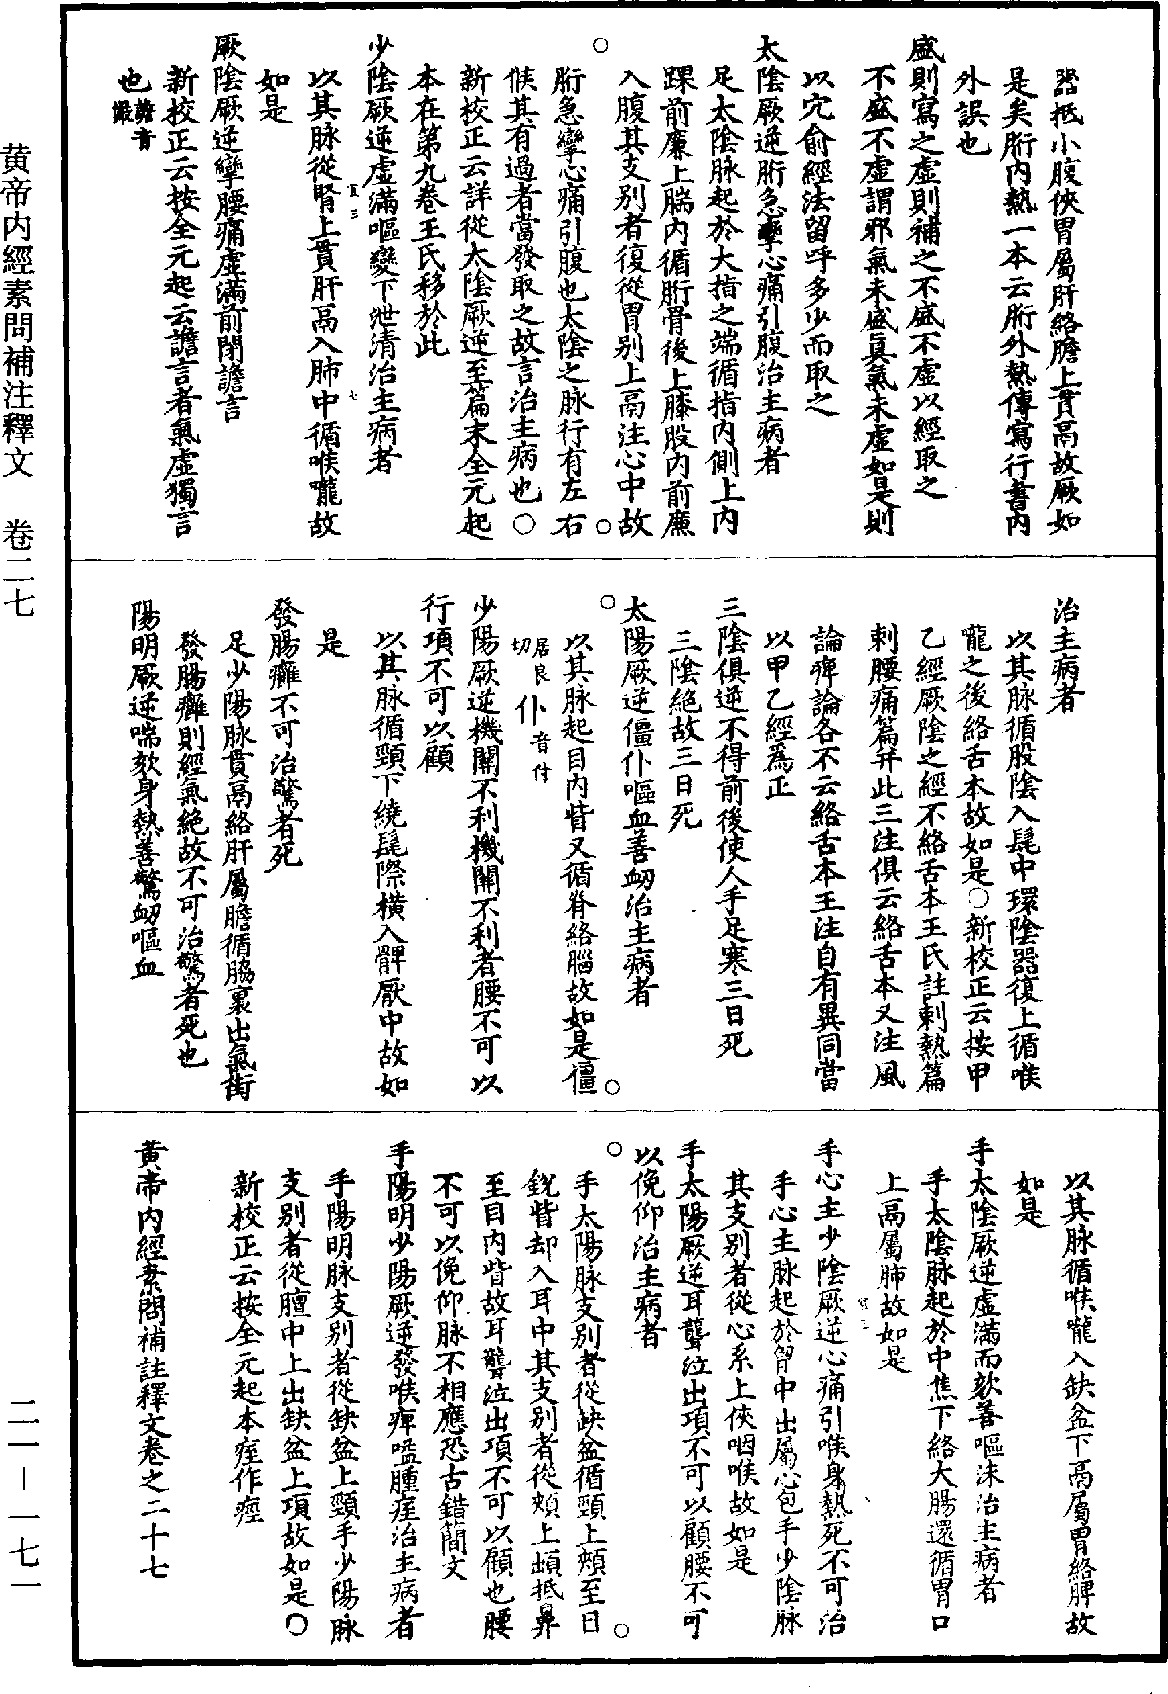 黄帝内經素問補注釋文　卷二七
器抵小腹俠胃屬肝絡膽上貫鬲故厥如
是矣胻内熱一本云胻外熱傳寫行書内
外誤也
盛則寫之虛則補之不盛不虛以經取之
不盛不虛謂邪氣未盛真氣未虛如是則
以穴俞經法留呼多少而取之
太陰厥逆胻急攣心痛引腹治主病者
足太陰脉起於大指之端循指内側上内
踝前廉上腨内循胻骨後上膝股内前廉
入腹其支别者復從胃别上鬲注心中故
胻急攣心痛引腹也太陰之脉行有左右
候其有過者當發取之故言治主病也○
新校正云詳從太陰厥逆至篇末全元起
本在第九卷王氏移於此
少陰厥逆虛滿嘔變下泄清治主病者
以其脉從腎上貫肝鬲入肺中循喉嚨故
如是
厥陰厥逆攣腰痛虛滿前閉譫言
新校正云按全元起云譫言者氣虛獨言
也譫音嚴
治主病者
以其脉循股陰入髦中環陰器復上循喉
嚨之後絡舌本故如是○新校正云按甲
乙經厥陰之經不絡舌本王氏註剌熱篇
剌腰痛篇并此三注俱云絡舌本又注風
論痺論各不云絡舌本王注自有異同當
以甲乙經爲正
三陰俱逆不得前後使人手足寒三日死
三陰絶故三日死
太陽厥逆僵仆嘔血善衂治主病者
以其脉起目内眥又循脊絡腦故如是僵
居良切仆音付
少陽厥逆機關不利機關不利者腰不可以
行項不可以顧
以其脉循頸下繞髦際横入髀厭中故如
是
發腸癰不可治驚者死
足少陽脉貫鬲絡肝屬膽循脇裏出氣街
發腸癰則經氣絶故不可治驚者死也
陽明厥逆喘欬身熱善驚衂嘔血
以其脉循喉嚨入缺盆下鬲屬胃絡脾故
如是
手太陰厥逆虛滿而欬善嘔沫治主病者
手太陰脉起於中焦下絡大腸還循胃口
上鬲屬肺故如是
手心主少陰厥逆心痛引喉身熱死不可治
手心主脉起於胷中出屬心包手少陰脉
其支别者從心系上俠咽喉故如是
手太陽厥逆耳聾泣出項不可以顧腰不可
以俛仰治主病者
手太陽脉支别者從缺盆循頸上頰至目
鋭眥却入耳中其支别者從頰上䪼抵鼻
至目内眥故耳聾泣出項不可以顧也腰
不可以俛仰脉不相應恐古錯簡文
手陽明少陽厥逆發喉痺嗌腫痓治主病者
手陽明脉支别者從缺盆上頸手少陽脉
支别者從膻中上出缺盆上項故如是○
新校正云按全元起本痓作痙
黄帝内經素問補註釋文卷之二十七
二一－一七一